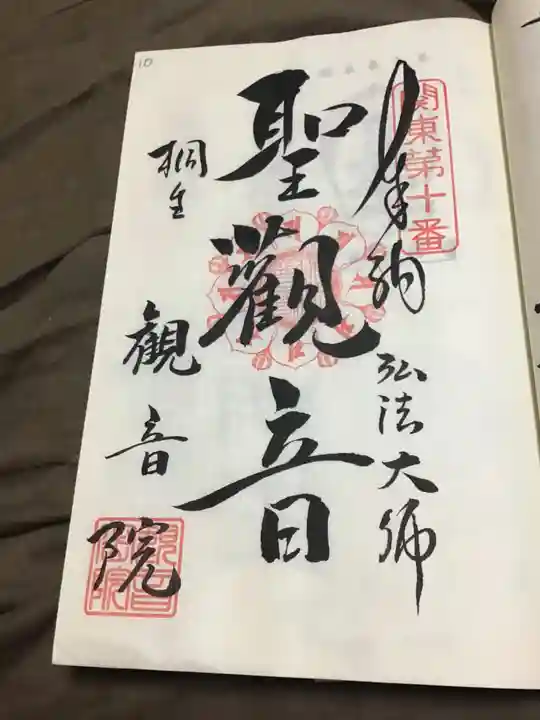 10
関東第十番
奉納
弘法大師
聖觀音
桐生
観音院
観音院